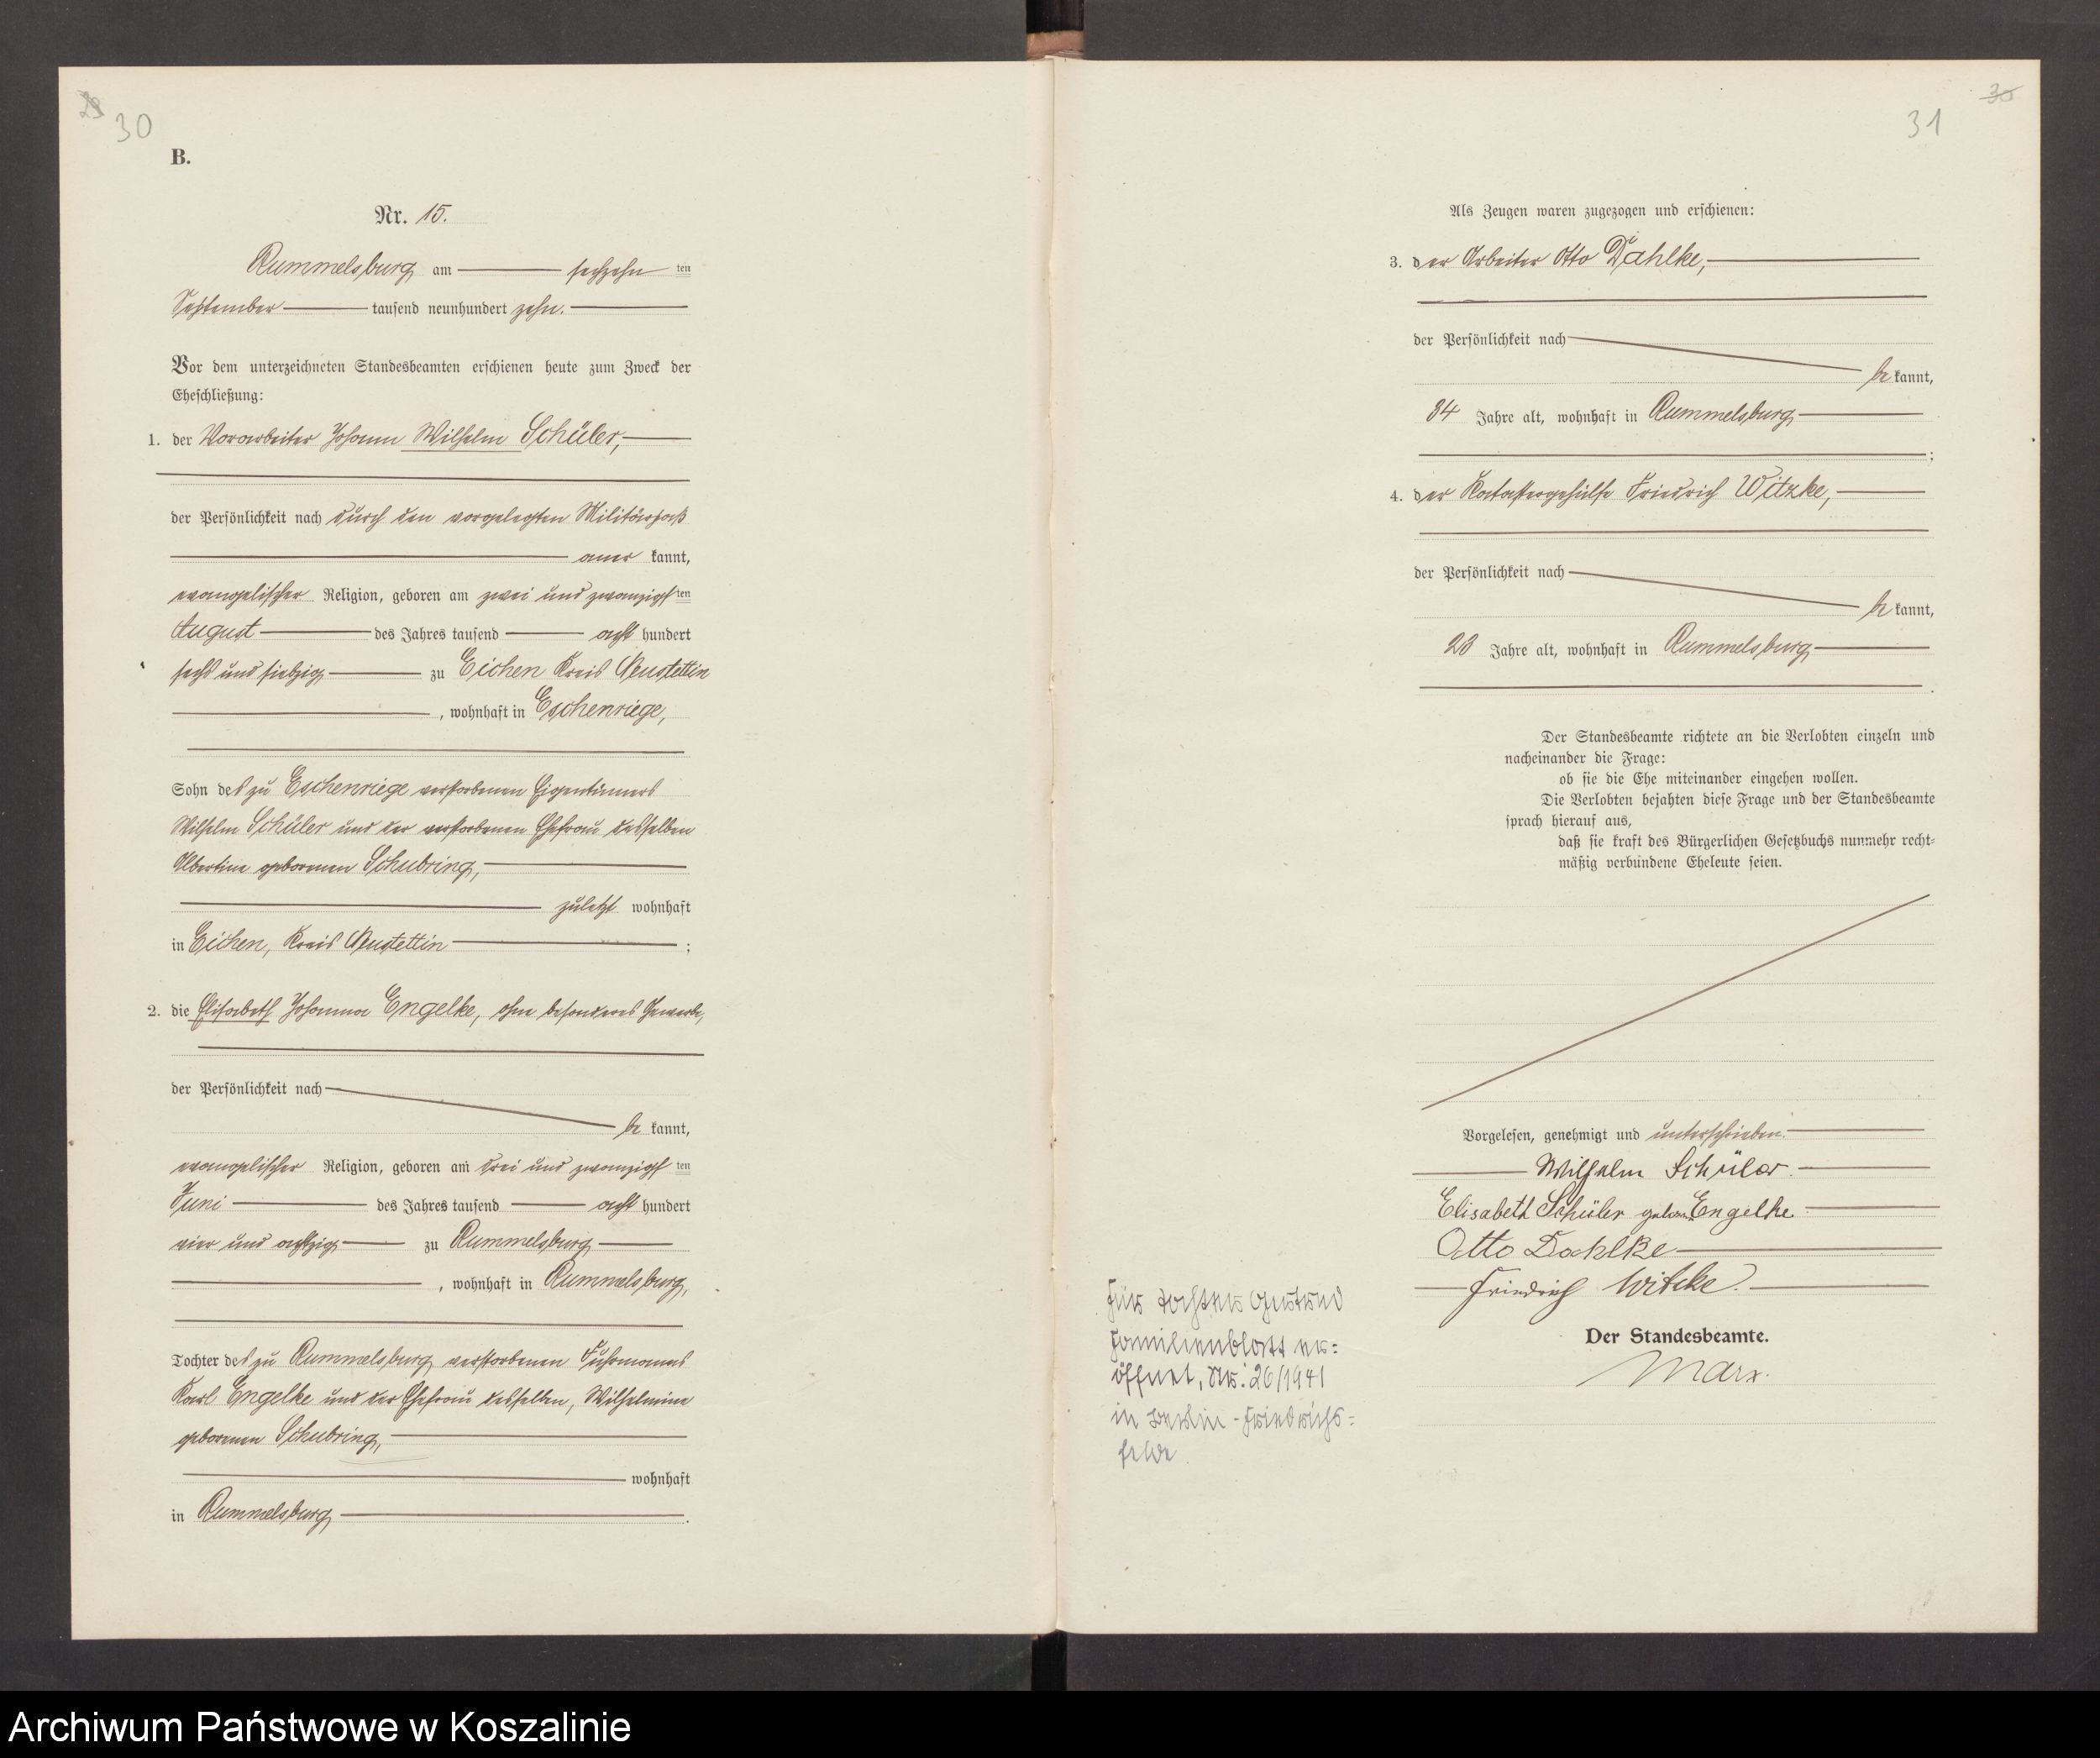 29
30
B.
Nr. 15.
Rummelsburg am sechzehnten
September tausend neunhundert zehn.
Vor dem unterzeichneten Standesbeamten erschienen heute zum Zweck der
Eheschließung:
1. der Vorarbeiter Johann Wilhelm Schüler,
der Persönlichkeit nach durch den vorgelegten Militärpaß
aner kannt,
evangelischer Religion, geboren am zwei und zwanzigsten
August des Jahres tausend acht hundert
sechs und siebzig zu Eichen Kreis Neustettin
, wohnhaft in Eschenriege,
Sohn des zu Eschenriege verstorbenen Eigentümers
Wilhelm Schüler und der verstorbenen Ehefrau desselben
Albertine geborenen Schubring,
zuletzt wohnhaft
in Eichen, Kreis Neustettin ;
2. die Elisabeth Johanna Engelke, ohne besonderes Gewerbe,
der Persönlichkeit nach
be kannt,
evangelischer Religion, geboren am drei und zwanzigsten
Juni des Jahres tausend acht hundert
vier und achtzig zu Rummelsburg
, wohnhaft in Rummelsburg,
Tochter des zu Rummelsburg verstorbenen Fuhrmanns
Karl Engelke und der Ehefrau desselben, Wilhelmine
geborenen Schubring,
wohnhaft
in Rummelsburg .
30
31
Als Zeugen waren zugezogen und erschienen:
3. der Arbeiter Otto Dahlke,
der Persönlichkeit nach
be kannt,
34 Jahre alt, wohnhaft in Rummelsburg
;
4. der Katastergehülfe Friedrich Witzke,
der Persönlichkeit nach
be kannt,
23 Jahre alt, wohnhaft in Rummelsburg
.
Der Standesbeamte richtete an die Verlobten einzeln und
nacheinander die Frage:
ob sie die Ehe miteinander eingehen wollen.
Die Verlobten bejahten diese Frage und der Standesbeamte
sprach hierauf aus,
daß sie kraft des Bürgerlichen Gesetzbuchs nunmehr recht-
mäßig verbundene Eheleute seien.
Vorgelesen, genehmigt und unterschrieben.
Wilhelm Schüler.
Elisabeth Schüler geborene Engelke
Otto Dahlke
Friedrich Witzke.
Der Standesbeamte.
Marx.
Für Tochter Gertrud
Familienblatt er-
öffnet, Nr. 26/1941
in Berlin-Friedrichs-
felde
Archiwum Państwowe w Koszalinie